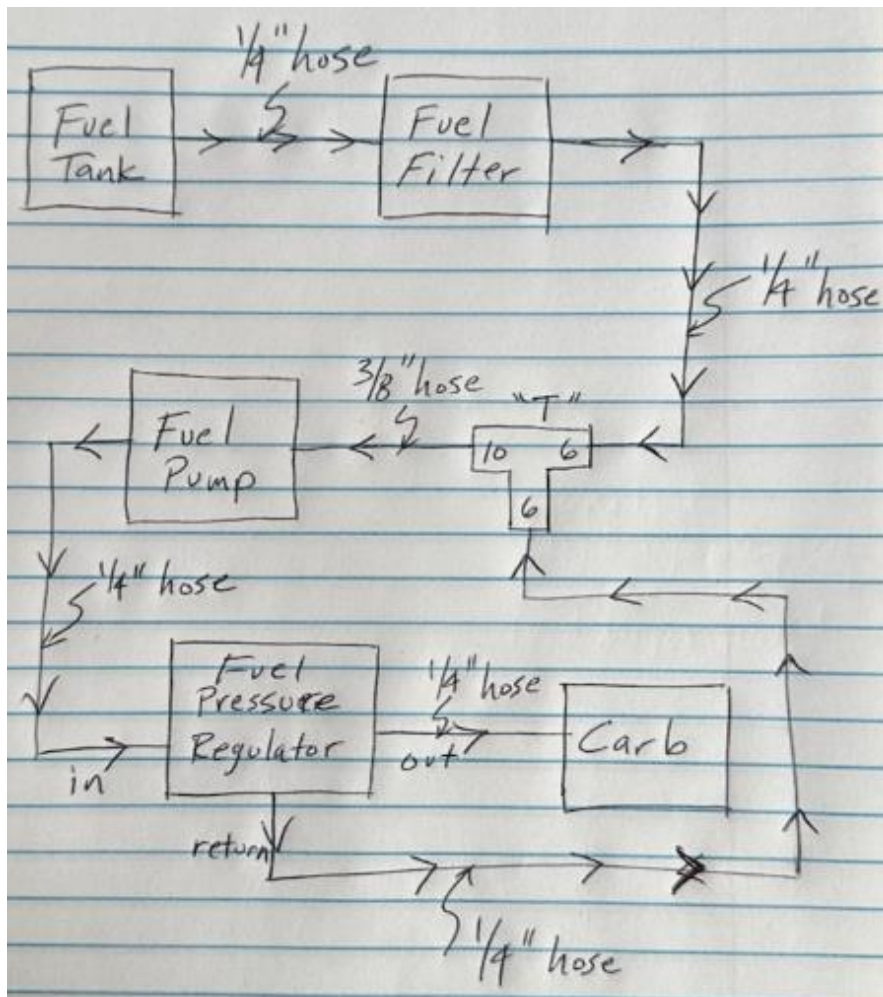 1/4" hose
Fuel
Tank
Fuel
Filter
1/4" hose
3/8" hose
"T"
Fuel
Pump
10
6
6
1/4" hose
Fuel
Pressure
Regulator
1/4" hose
Carb
in
out
return
1/4" hose